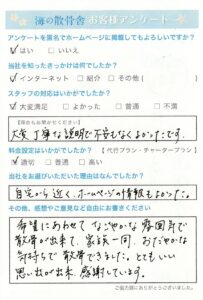 海の散骨舎 お客様アンケート
アンケートを匿名でホームページに掲載してもよろしいですか？
はい □ いいえ
当社を知ったきっかけは何でしたか？
インターネット □ 紹介 □ その他 (　　　)
スタッフの対応はいかがでしたか？
大変満足 □ よかった □ 普通 □ 不満
【理由もお聞かせください】
大変丁寧な説明で不安もなくよかったです。
料金設定はいかがでしたか？ 【 代行プラン・チャータープラン 】
適切 □ 普通 □ 高い
当社をお選びいただいた理由はなんでしたか？
自宅から近く、ホームページの情報もよかった。
その他、感想やご意見など自由にお書きください
希望にあわせて なごやかな 雰囲気で
散骨が出来て、家族一同、おだやかな
気持ちで 散骨できました。とてもいい
思い出が出来、感謝しています。
ご協力誠にありがとうございました。